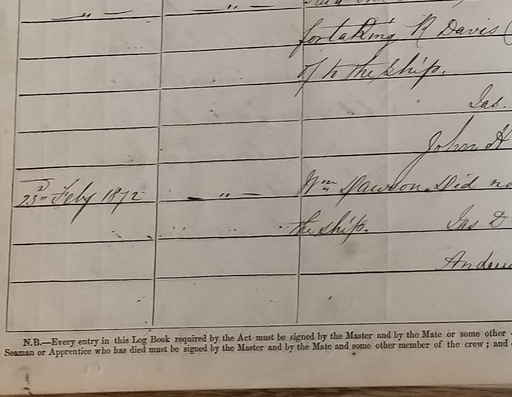 for taking R Davis (
of to the ship.
Jas.
John H
23rd Feby 1872 — " — Wm Dawson Did no
the ship. Jas D
Andrew
N.B.—Every entry in this Log Book required by the Act must be signed by the Master and by the Mate or some other
Seaman or Apprentice who has died must be signed by the Master and by the Mate and some other member of the crew ; and